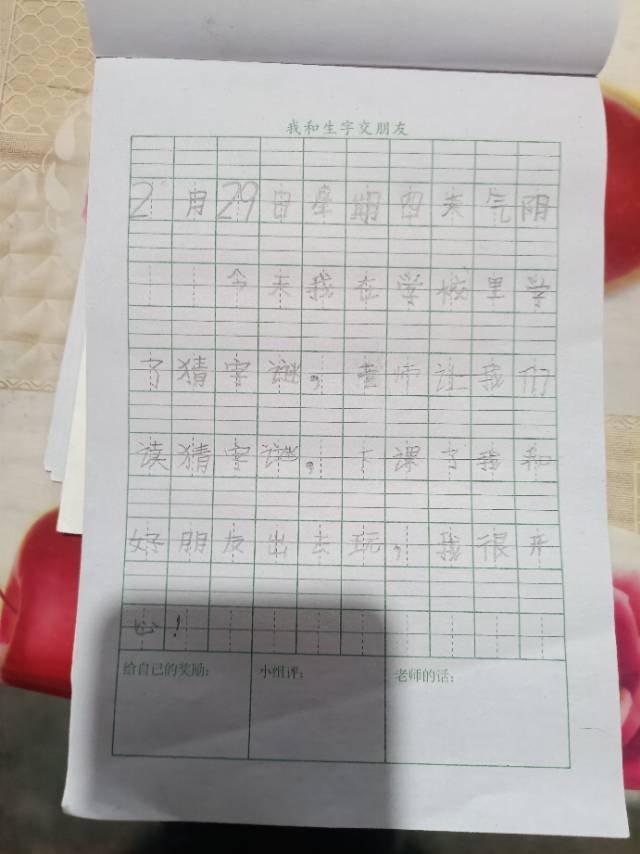 我和生字交朋友
2月29日星期四天气阴
今天我在学校里学
了猜字谜，老师让我们
读猜字谜，下课了我和
好朋友出去玩，我很开
心！
给自己的奖励：
小组评：
老师的话：